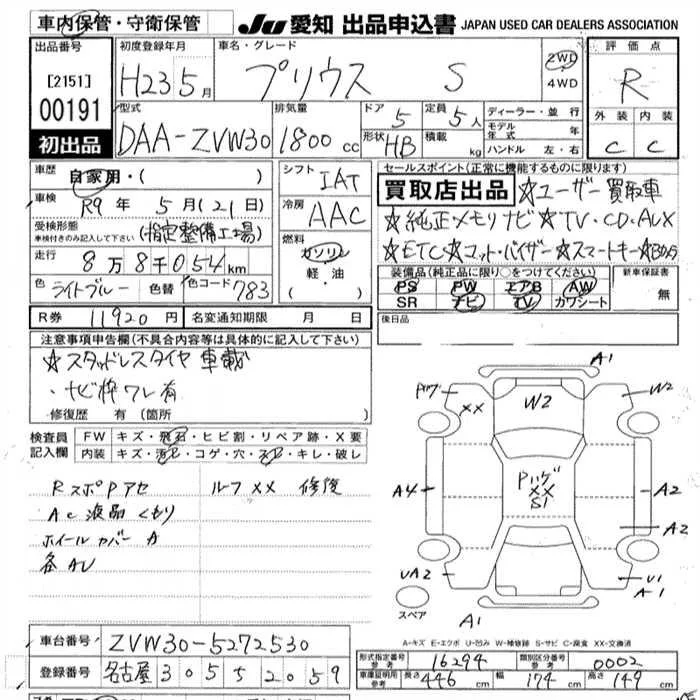 車内保管・守衛保管
JU 愛知 出品申込書 JAPAN USED CAR DEALERS ASSOCIATION
出品番号
[2151]
00191
初出品
初度登録年月
H23 5月
車名・グレード
プリウス S
2WD
4WD
評価点
R
外装 内装
C C
型式
DAA-ZVW30
排気量
1800 cc
ドア 5
定員 5人
形状 HB
積載 kg
ディーラー・並行
モデル年式 年
ハンドル 左・右
車歴
自家用・( )
車検
R9年5月(21日)
受検形態
車検付きのみ記入して下さい
(指定整備工場)
走行
8万8千054km
色 ライトブルー 色替 色コード 783
シフト
IAT
冷房
AAC
燃料
ガソリン
軽・油
( ・ )
セールスポイント(正常に機能するものに限ります)
買取店出品 ☆ユーザー買取車
☆純正メモリナビ☆TV・CD・AUX
☆ETC☆マット・バイザー☆スマートキー☆
装備品(純正品に限り○をつけてください)
PS PW エアB AW
SR ナビ TV カワシート
新車保証書
無
R券 11920円 名変通知期限 月 日
後日品
注意事項申告欄(不具合内容等は具体的に記入して下さい)
☆スタッドレスタイヤ車載
・ナビ枠ワレ有
・修復歴 有(箇所
検査員記入欄
FW キズ・飛石・ヒビ割・リペア跡・X要
内装 キズ・汚れ・コゲ・穴・スレ・キレ・破レ
RスポPアセ ルーフXX 修復
AC液晶くもり
ホイールカバーA
各AU
A1
Pハゲ
XX
W2
W2
Pハゲ
XX
S1
A4
A2
A2
UA2
U1
A1
スペア
A1
A-キズ E-エクボ U-凹み W-補修跡 S-サビ C-腐食 XX-交換済
車台番号 ZVW30-5272530
登録番号 名古屋 305 5 2059
形式指定番号
参考
16294
類別区分番号
参考
0002
車庫証明用
参考
長さ 446 cm 幅 174 cm 高さ 149 cm